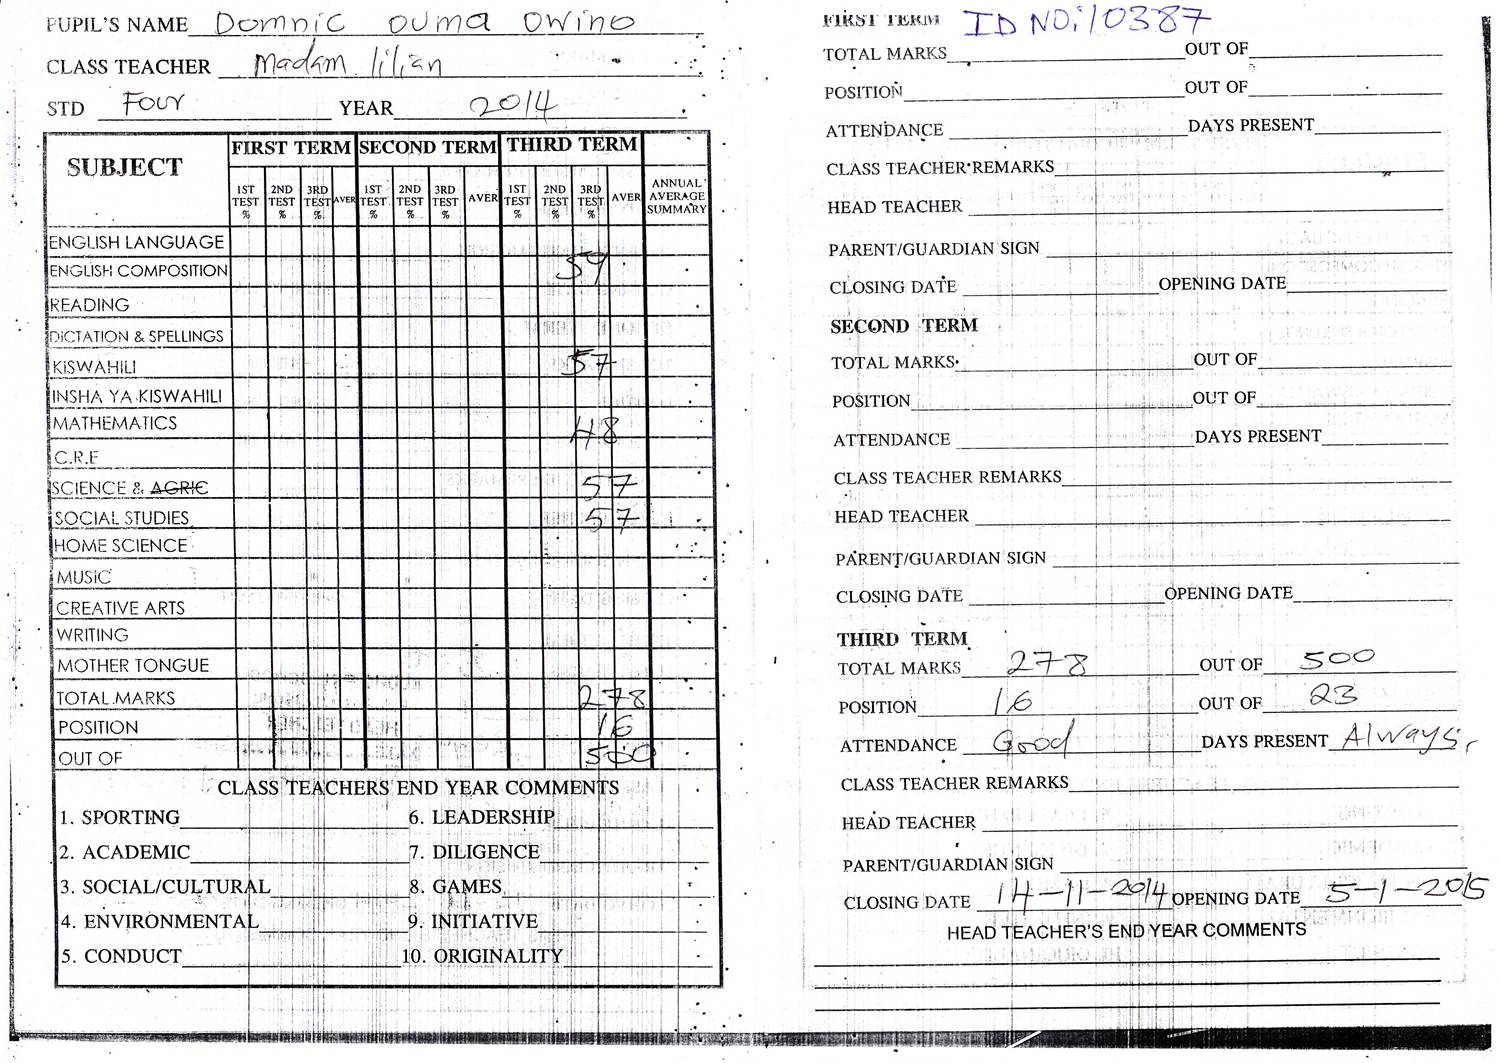 PUPIL'S NAME Domnic Ouma Owino
CLASS TEACHER Madam lilian
STD Four YEAR 2014
SUBJECT FIRST TERM SECOND TERM THIRD TERM
1ST TEST % 2ND TEST % 3RD TEST % AVER 1ST TEST % 2ND TEST % 3RD TEST % AVER 1ST TEST % 2ND TEST % 3RD TEST % AVER ANNUAL AVERAGE SUMMARY
ENGLISH LANGUAGE
ENGLISH COMPOSITION 59
READING
DICTATION & SPELLINGS
KISWAHILI 57
INSHA YA KISWAHILI
MATHEMATICS 48
C.R.E
SCIENCE & AGRIC 57
SOCIAL STUDIES 57
HOME SCIENCE
MUSIC
CREATIVE ARTS
WRITING
MOTHER TONGUE
TOTAL MARKS 278
POSITION 16
OUT OF 500
CLASS TEACHERS END YEAR COMMENTS
1. SPORTING 6. LEADERSHIP
2. ACADEMIC 7. DILIGENCE
3. SOCIAL/CULTURAL 8. GAMES
4. ENVIRONMENTAL 9. INITIATIVE
5. CONDUCT 10. ORIGINALITY
FIRST TERM ID NO:10387
TOTAL MARKS OUT OF
POSITION OUT OF
ATTENDANCE DAYS PRESENT
CLASS TEACHER REMARKS
HEAD TEACHER
PARENT/GUARDIAN SIGN
CLOSING DATE OPENING DATE
SECOND TERM
TOTAL MARKS OUT OF
POSITION OUT OF
ATTENDANCE DAYS PRESENT
CLASS TEACHER REMARKS
HEAD TEACHER
PARENT/GUARDIAN SIGN
CLOSING DATE OPENING DATE
THIRD TERM
TOTAL MARKS 278 OUT OF 500
POSITION 16 OUT OF 23
ATTENDANCE Good DAYS PRESENT Always.
CLASS TEACHER REMARKS
HEAD TEACHER
PARENT/GUARDIAN SIGN
CLOSING DATE 14-11-2014 OPENING DATE 5-1-2015
HEAD TEACHER'S END YEAR COMMENTS